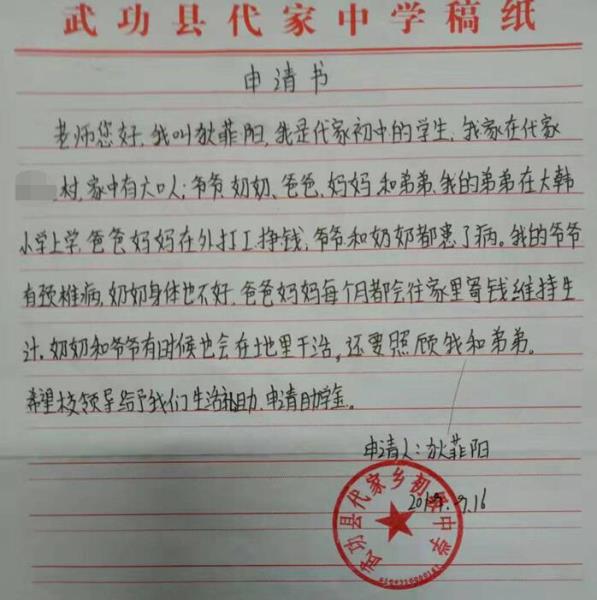 武功县代家中学稿纸
申请书
老师您好,我叫狄菲阳,我是代家初中的学生,我家在代家
村,家中有六口人:爷爷、奶奶、爸爸、妈妈和弟弟,我的弟弟在大韩
小学上学,爸爸妈妈在外打工挣钱,爷爷和奶奶都患了病。我的爷爷
有颈椎病,奶奶身体也不好,爸爸妈妈每个月都会往家里寄钱维持生
计,奶奶和爷爷有时候也会在地里干活,还要照顾我和弟弟。
希望校领导给予我们生活补助,申请助学金。
申请人:狄菲阳
9.16
武功县代家乡初级中学